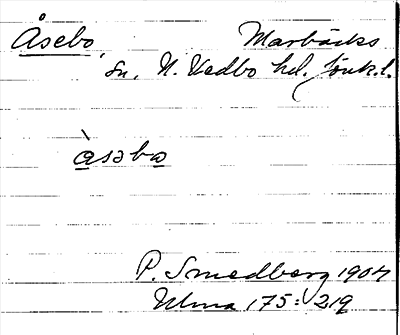 Åsebo, Marbäcks
sn, N. Vedbo hd. Jönk. l.
àsəbo
P. Smedberg 1904
Ulma 175: 219